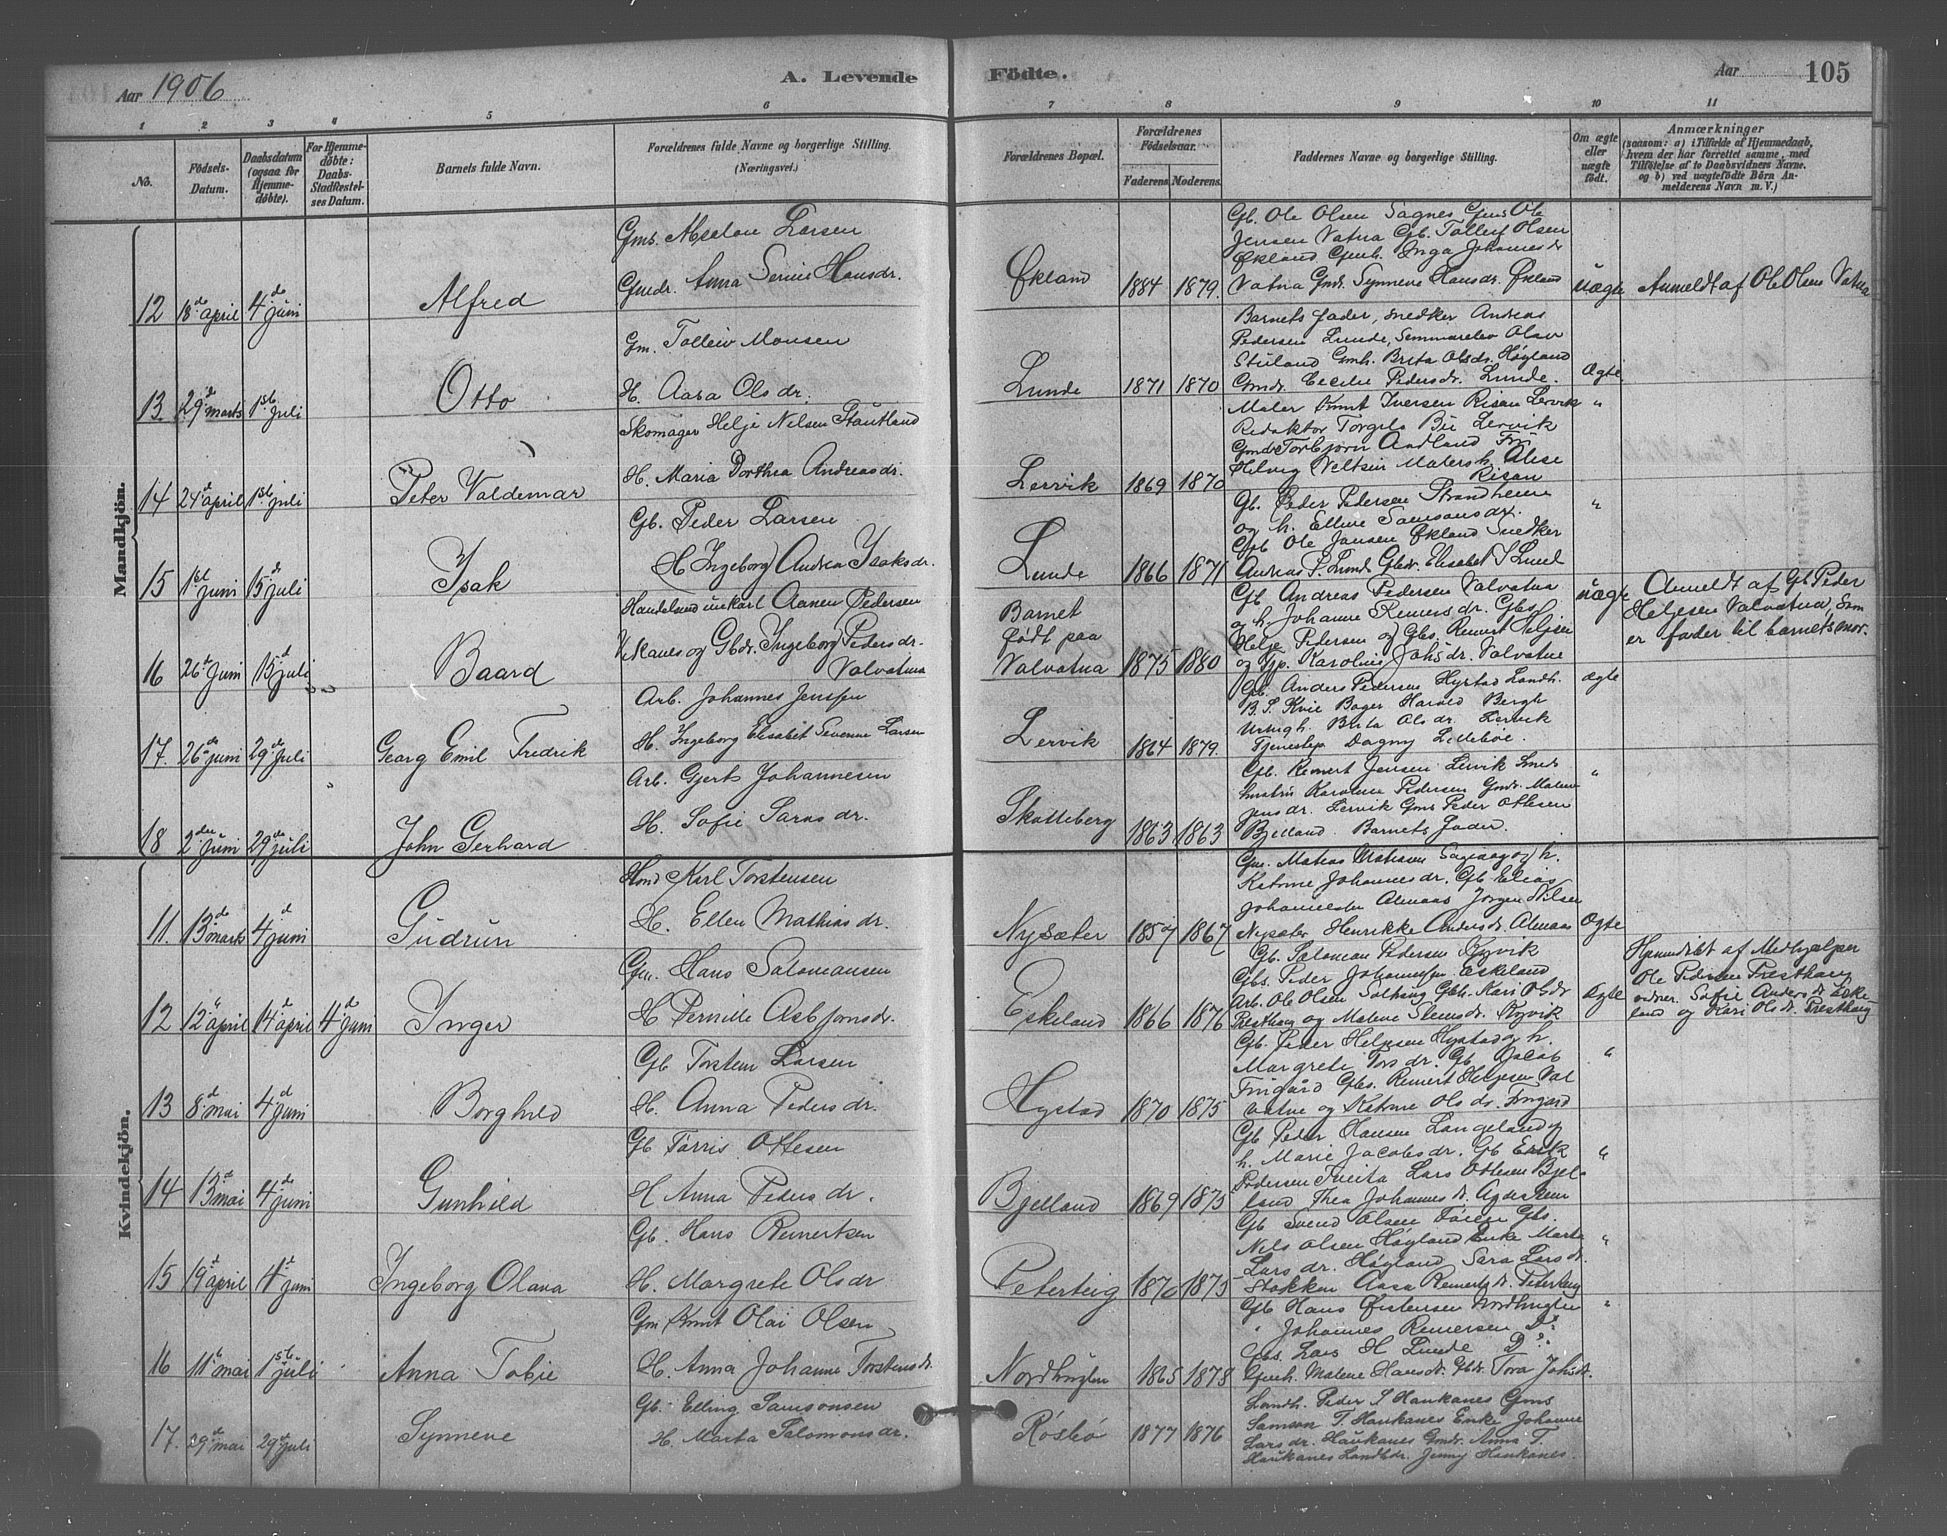 Aar 1906
A. Levende
Födte.
Aar
105
1 2 3 4 5 6 7 8 9 10 11
No.
Födsels-Datum.
Daabsdatum (ogsaa for Hjemmedøbte).
For Hjemmedøbte: Daabs-Stadfæstelses Datum.
Barnets fulde Navn.
Forældrenes fulde Navne og borgerlige Stilling. (Næringsvei.)
Forældrenes Bopæl.
Forældrenes Födselsaar.
Faderens. Moderens.
Faddernes Navne og borgerlige Stilling.
Om ægte eller uægte født.
Anmærkninger
(saasom: a) i Tilfælde af Hjemmedaab, hvem der har forrettet samme, med Tilföielse af to Daabsvidners Navne. og b) ved uægtefödte Börn Anmelderens Navn m. V.)
Mandkjön.
12 18de april 4de juni Alfred
Gms. Abselon Larsen
Gmdr. Anna Serine Hansdr.
Økland 1884 1879.
Gb. Ole Olsen Sagnes Gms Ole
Jensen Vatna Gb. Tolleif Olsen
Økland Gmh. Inga Johannesdr
Vatna Gmdr. Synneve Hansdr. Økland
uægte Anmeldt af Ole Olsen Vatna
13 29de marts 1st juli Otto
Gm. Tolleiv Monsen
H. Aasa Olsdr.
Lunde 1871 1870
Barnets fader, snedker Andreas
Pedersen Lunde, Seminarelev Olav
Stuland Gmh. Brita Olsdr. Høgland
Gmdr. Cecilie Pedersdr. Lunde.
Ægte
14 24de april 1st juli Peter Valdemar
Skomager Helje Nilsen Stautland
H. Maria Dorthea Andreasdr.
Lervik 1869 1870
Maler Knut Iversen Risan Lervik
Redaktør Torgils Bü Lervik
Gmds Torbjørn Aadland Frk
Helvig Veltsin Malersh. Alise
Risan
"
15 1st juni 15de juli Isak
Gb. Peder Larsen
H Ingeborg Andrea Isaksdr.
Lunde 1866 1871
Gb. Peder Pedersen Strandheim
og h. Elline Samsonsdr.
Gb Ole Jansen Økland Snedker
Andreas P. Lunde Gbdr. Elisabet I Lund
"
16 26de juni 15de juli Baard
Handelsmekarl Aanen Pedersen
Vikanes og Gbdr. Ingeborg Pedersdr.
Valvatna
Barnet
født paa
Valvatna 1875 1880
Gb Andreas Pedersen Valvatna
og h. Johanne Reinersdr. Gbs
Helje Pedersen og Gbs. Reinert Heljsen
og Gp. Karoline Johsdr. Valvatne
uægte Anmeldt af Gb Peder
Heljesen Valvatna, som
er fader til barnets mor.
17. 26de juni 29de Juli Georg Emil Fredrik
Arb. Johannes Jenssen
H. Ingeborg Elisabet Severine Larsen
Lervik 1864 1879.
Gb. Anders Pedersen Hystad Landh.
B. S. Kvie Bager Harald Bergh
Urmgh. Brita Olsdr. Lervik
Tjenestep Dagny Lillebøe.
ægte
18 2den juni 29de juli John Gerhard
Arb. Gjert Johannesen
H. Sofie Larsdr.
Skotteberg 1863 1863
Gb. Reinert Jensen Lervik Smed
hustru Karoline Pedersen Gmdr. Malene
Jensdr. Lervik Gms Peder Ottesen
Bjelland. Barnets fader.
"
Kvindekjön.
11. 13de marts 4de juni Gudrun
Hmd Karl Torstensen
H. Ellen Mathiasdr.
Nysæter 1857 1867
Gm. Matias Matiasen Sagvaag og h.
Katrine Johannesdr. Gb Elias
Johannesen Almaas Jørgen Nilsen
Nysæter Henrikke Andersdr. Almaas
Ægte
12 12te april 14de april 4de juni Inger
Gm. Hans Salomonsen
H Pernille Asbjørnsdr.
Eskeland 1866 1876
Gb. Salomon Pedersen Røyvik
Gbs. Peder Johannessen Eskeland
Arb. Ole Olsen Solhaug Gbh. Kari Olsdr
Presthaug og Malene Stensdr. Røyvik
Ægte Hjemdøbt af Medhjælper
Ole Pedersen Presthaug
vidner. Sofie Andersdr. Eske-
land og Kari Olsdr. Presthaug
13 8de mai 4de juni Borghild
Gb Torstein Larsen
H. Anna Pedersdr.
Hystad 1870 1875
Gb. Peder Helgesen Hystad og h.
Margrete Torsdr. Gb Jakob
Tingård Gbs. Reinert Heljesen Val
vatne og Katrine Olsdr. Tingård
"
14 13de mai 4de juni Gunhild
Gb Tørris Ottesen
H Anna Pedersdr.
Bjelland 1869 1875
Gb Peder Hansen Langeland og
h. Marie Jacobsdr. Gb Erik
Pedersen Tveita Lars Ottesen Bjel-
land Thea Johannesdr. Agdestein
"
15 19de april 4de juni Ingeborg Olava
Gb. Hans Reinertsen
H. Margrete Olsdr
Peterteig 1870 1875
Gb Svend Olsen Føien Gbs.
Nils Olsen Høgland Enke Marta
Larsdr. Høgland Sara Larsdr.
Stokken Aasa Reinertsdr. Peterteig
"
16 11te mai 1st juli Anna Tobie
Gm Knut Olai Olsen
H. Anna Johanne Torstensdr.
Nordhuglen 1865 1878
Gb Hans Østensen Nordhuglen
" Johannes Reinersen Do
Gbs. Lars H Lunde Do
Gmh. Malene Hansdr. Gbdr. Tora Johsdr.
"
17. 29de mai 29de juli Synneve
Gb. Elling Samsonsen
H. Marta Salomonsdr.
Røsbø 1877 1876
Landh. Peder S Haukanes Gms
Samson T. Haukanes Enke Johanne
Larsdr. Haukanes Gmdr. Anna T.
Haukanes Landhdr. Jenny Haukanes.